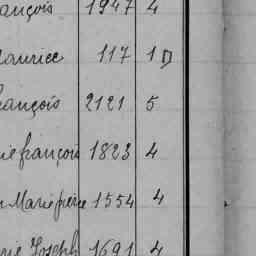 ançois 1947 4
aurice 117 1
rançois 2121 5
ie françois 1823 4
Marie pierre 1554 4
rie Joseph 1691 4